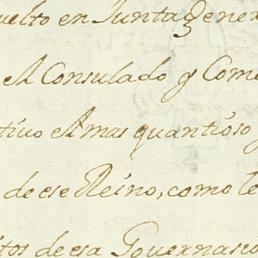 uelto en Junta Gener
el Consulado y Come
tivo el mas quantioso y
de ese Reino, como le
itos de esa Governaco